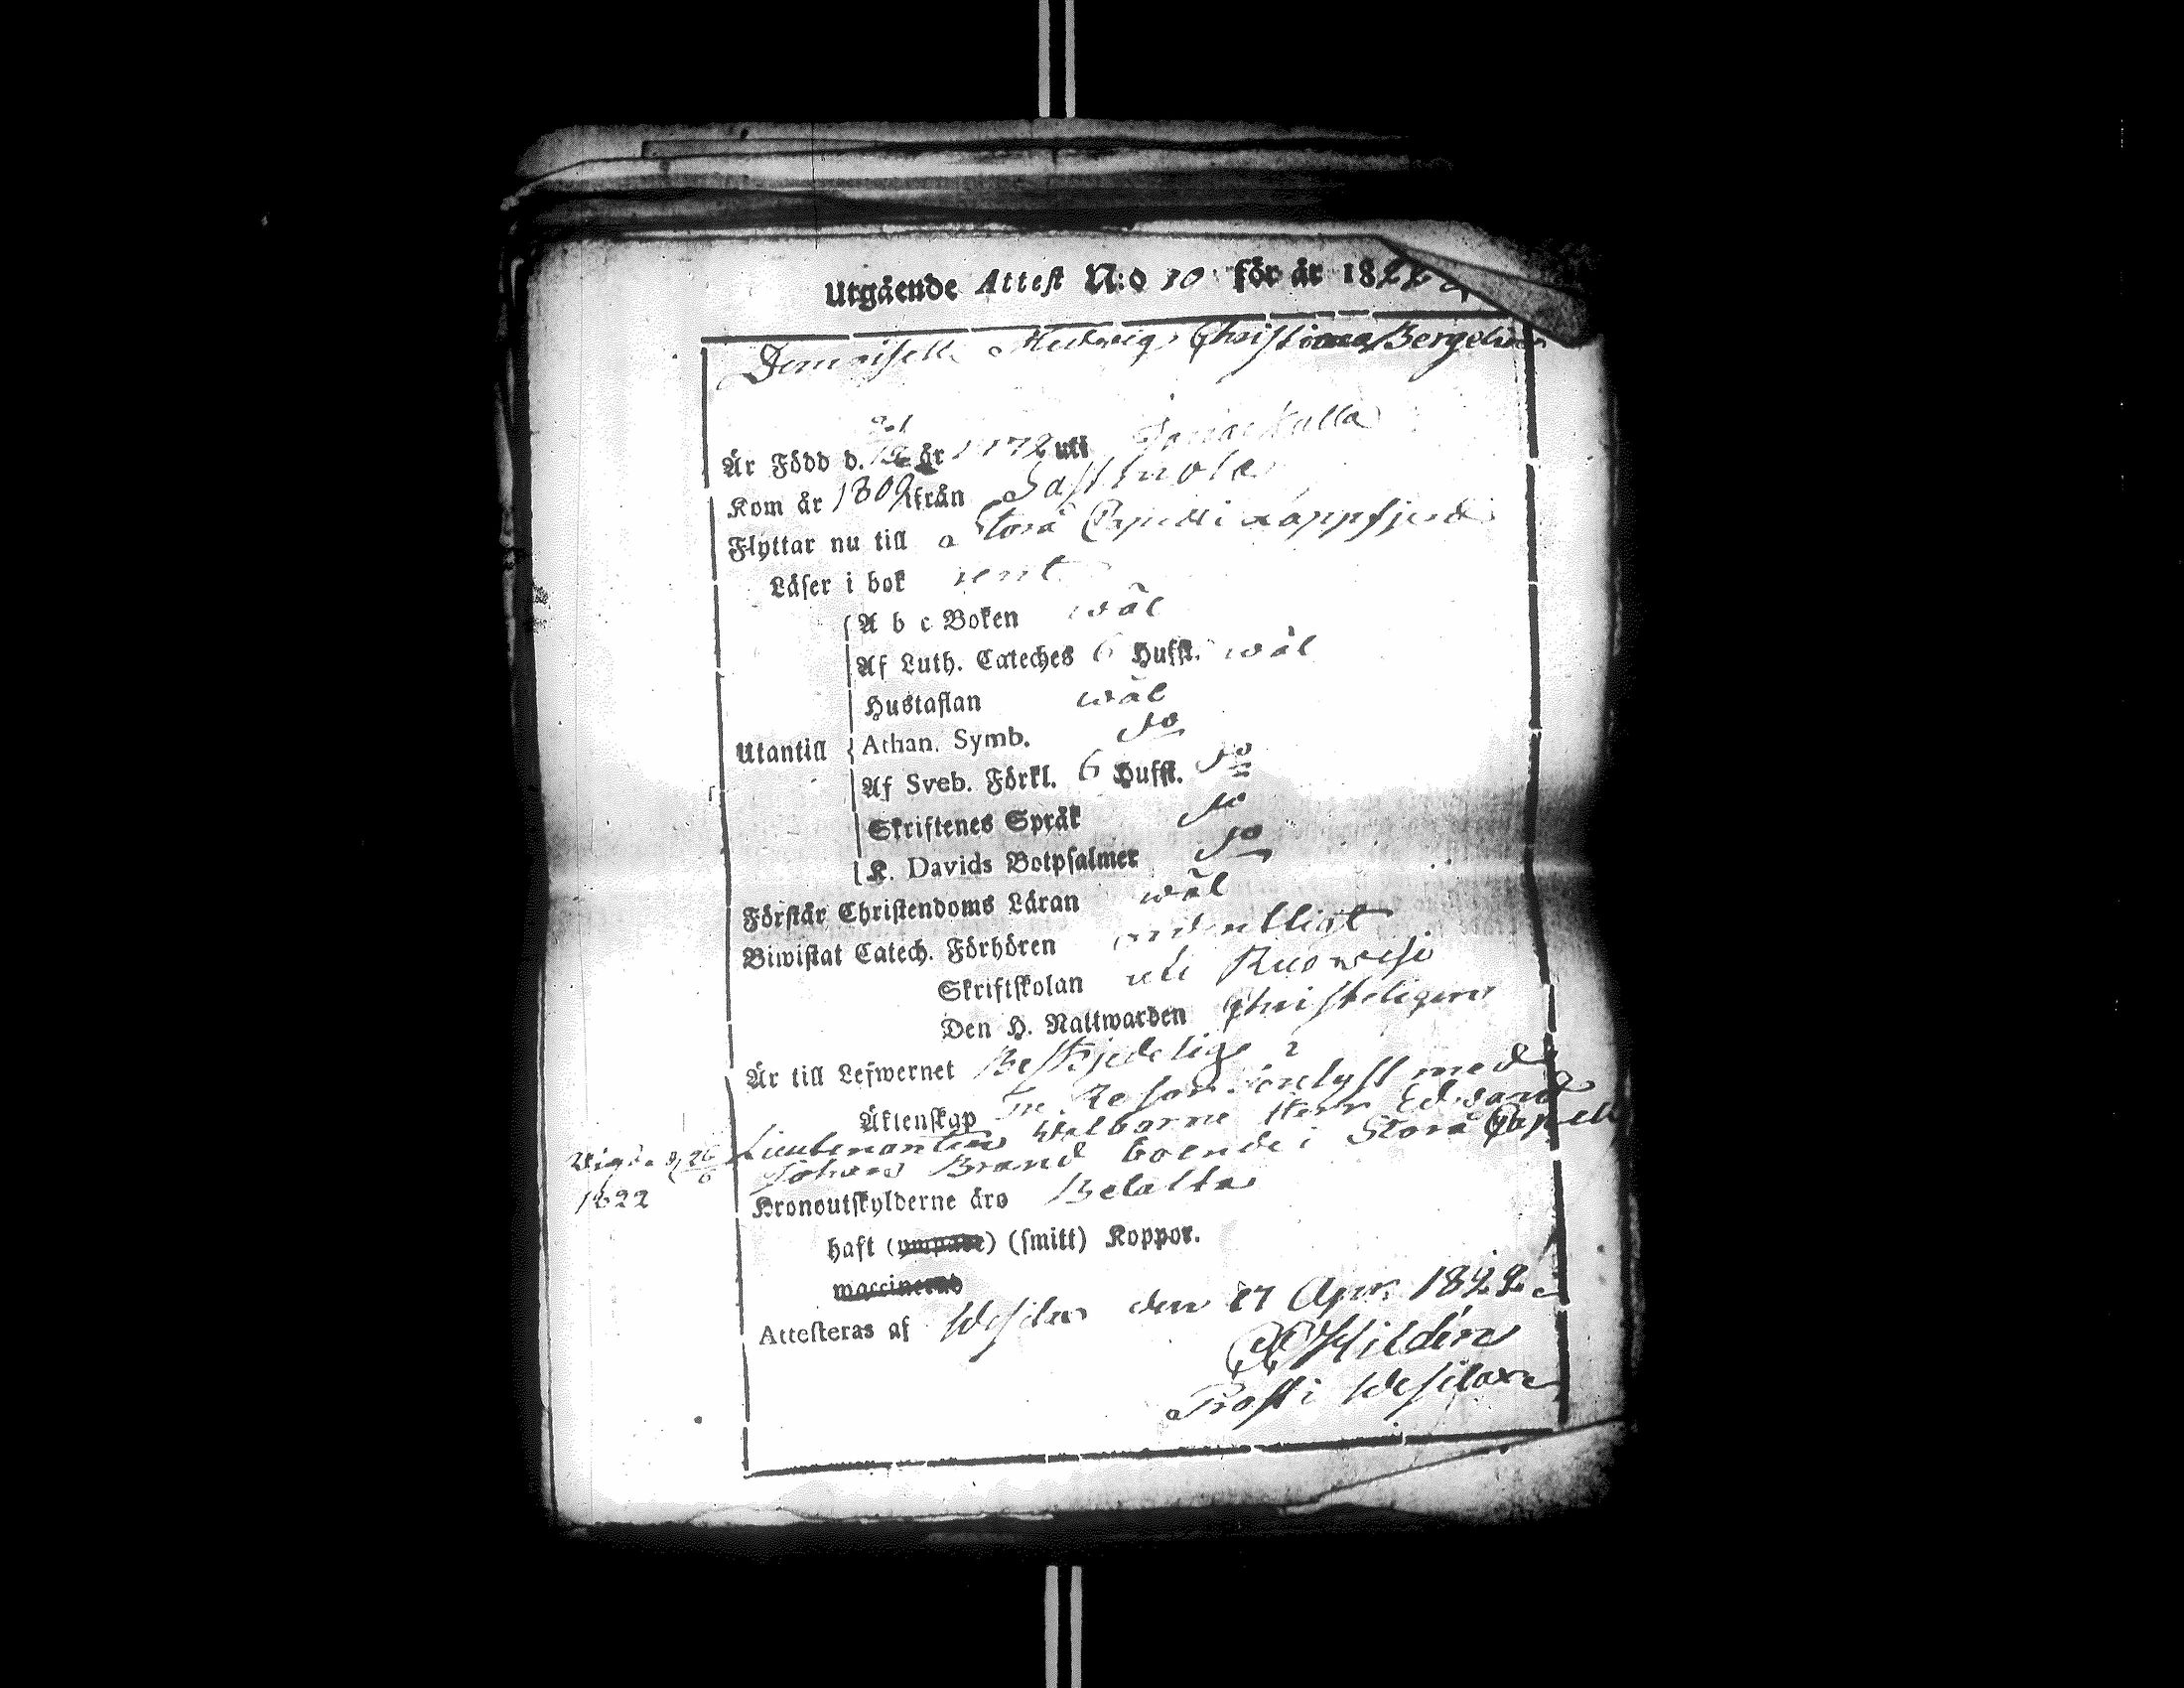 Utgående Attest N:o 10 för år 1822
Demoisell Hedwig Christina Bergelin
Är Född d. år 1772 uti
Kom år 1809 ifrån Sastmola
Flyttar nu till Storå Capell i Lappfjerd
Läser i bok rent
A b c Boken wäl
Af Luth. Cateches 6 Hufst. wäl
Hustaflan wäl
Utantill Athan. Symb.
Af Sveb. Förkl. 6 Hufst.
Skriftenes Språk
K. Davids Botpsalmer
Förstår Christendoms Läran wäl
Biwistat Catech. Förhören ordentligt
Skriftskolan uti Ruowesi
Den H. Nattwarden Christeligen
Är till Lefwernet Beskjedelig
Äktenskap med
Lieutenanten Welborne Herr Edvard
Johan Brand boende i Storå Capell
Vigde d. 26
1822
Kronoutskylderne äro Betalta
haft (smitt) Koppor.
waccinerad
Attesteras af den 17 Apr. 1822
Hildén
Prost i